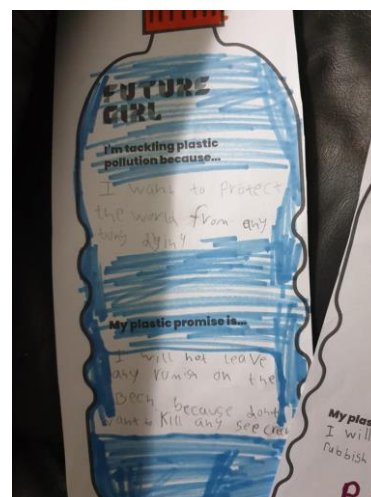 FUTURE
GIRL
I'm tackling plastic
pollution because...
I want to Protect
the world from any
thing dying
My plastic promise is...
I will not leave
any rumish on the
Bech because dont
want to Kill any see
My plas
I will
rubbish
p